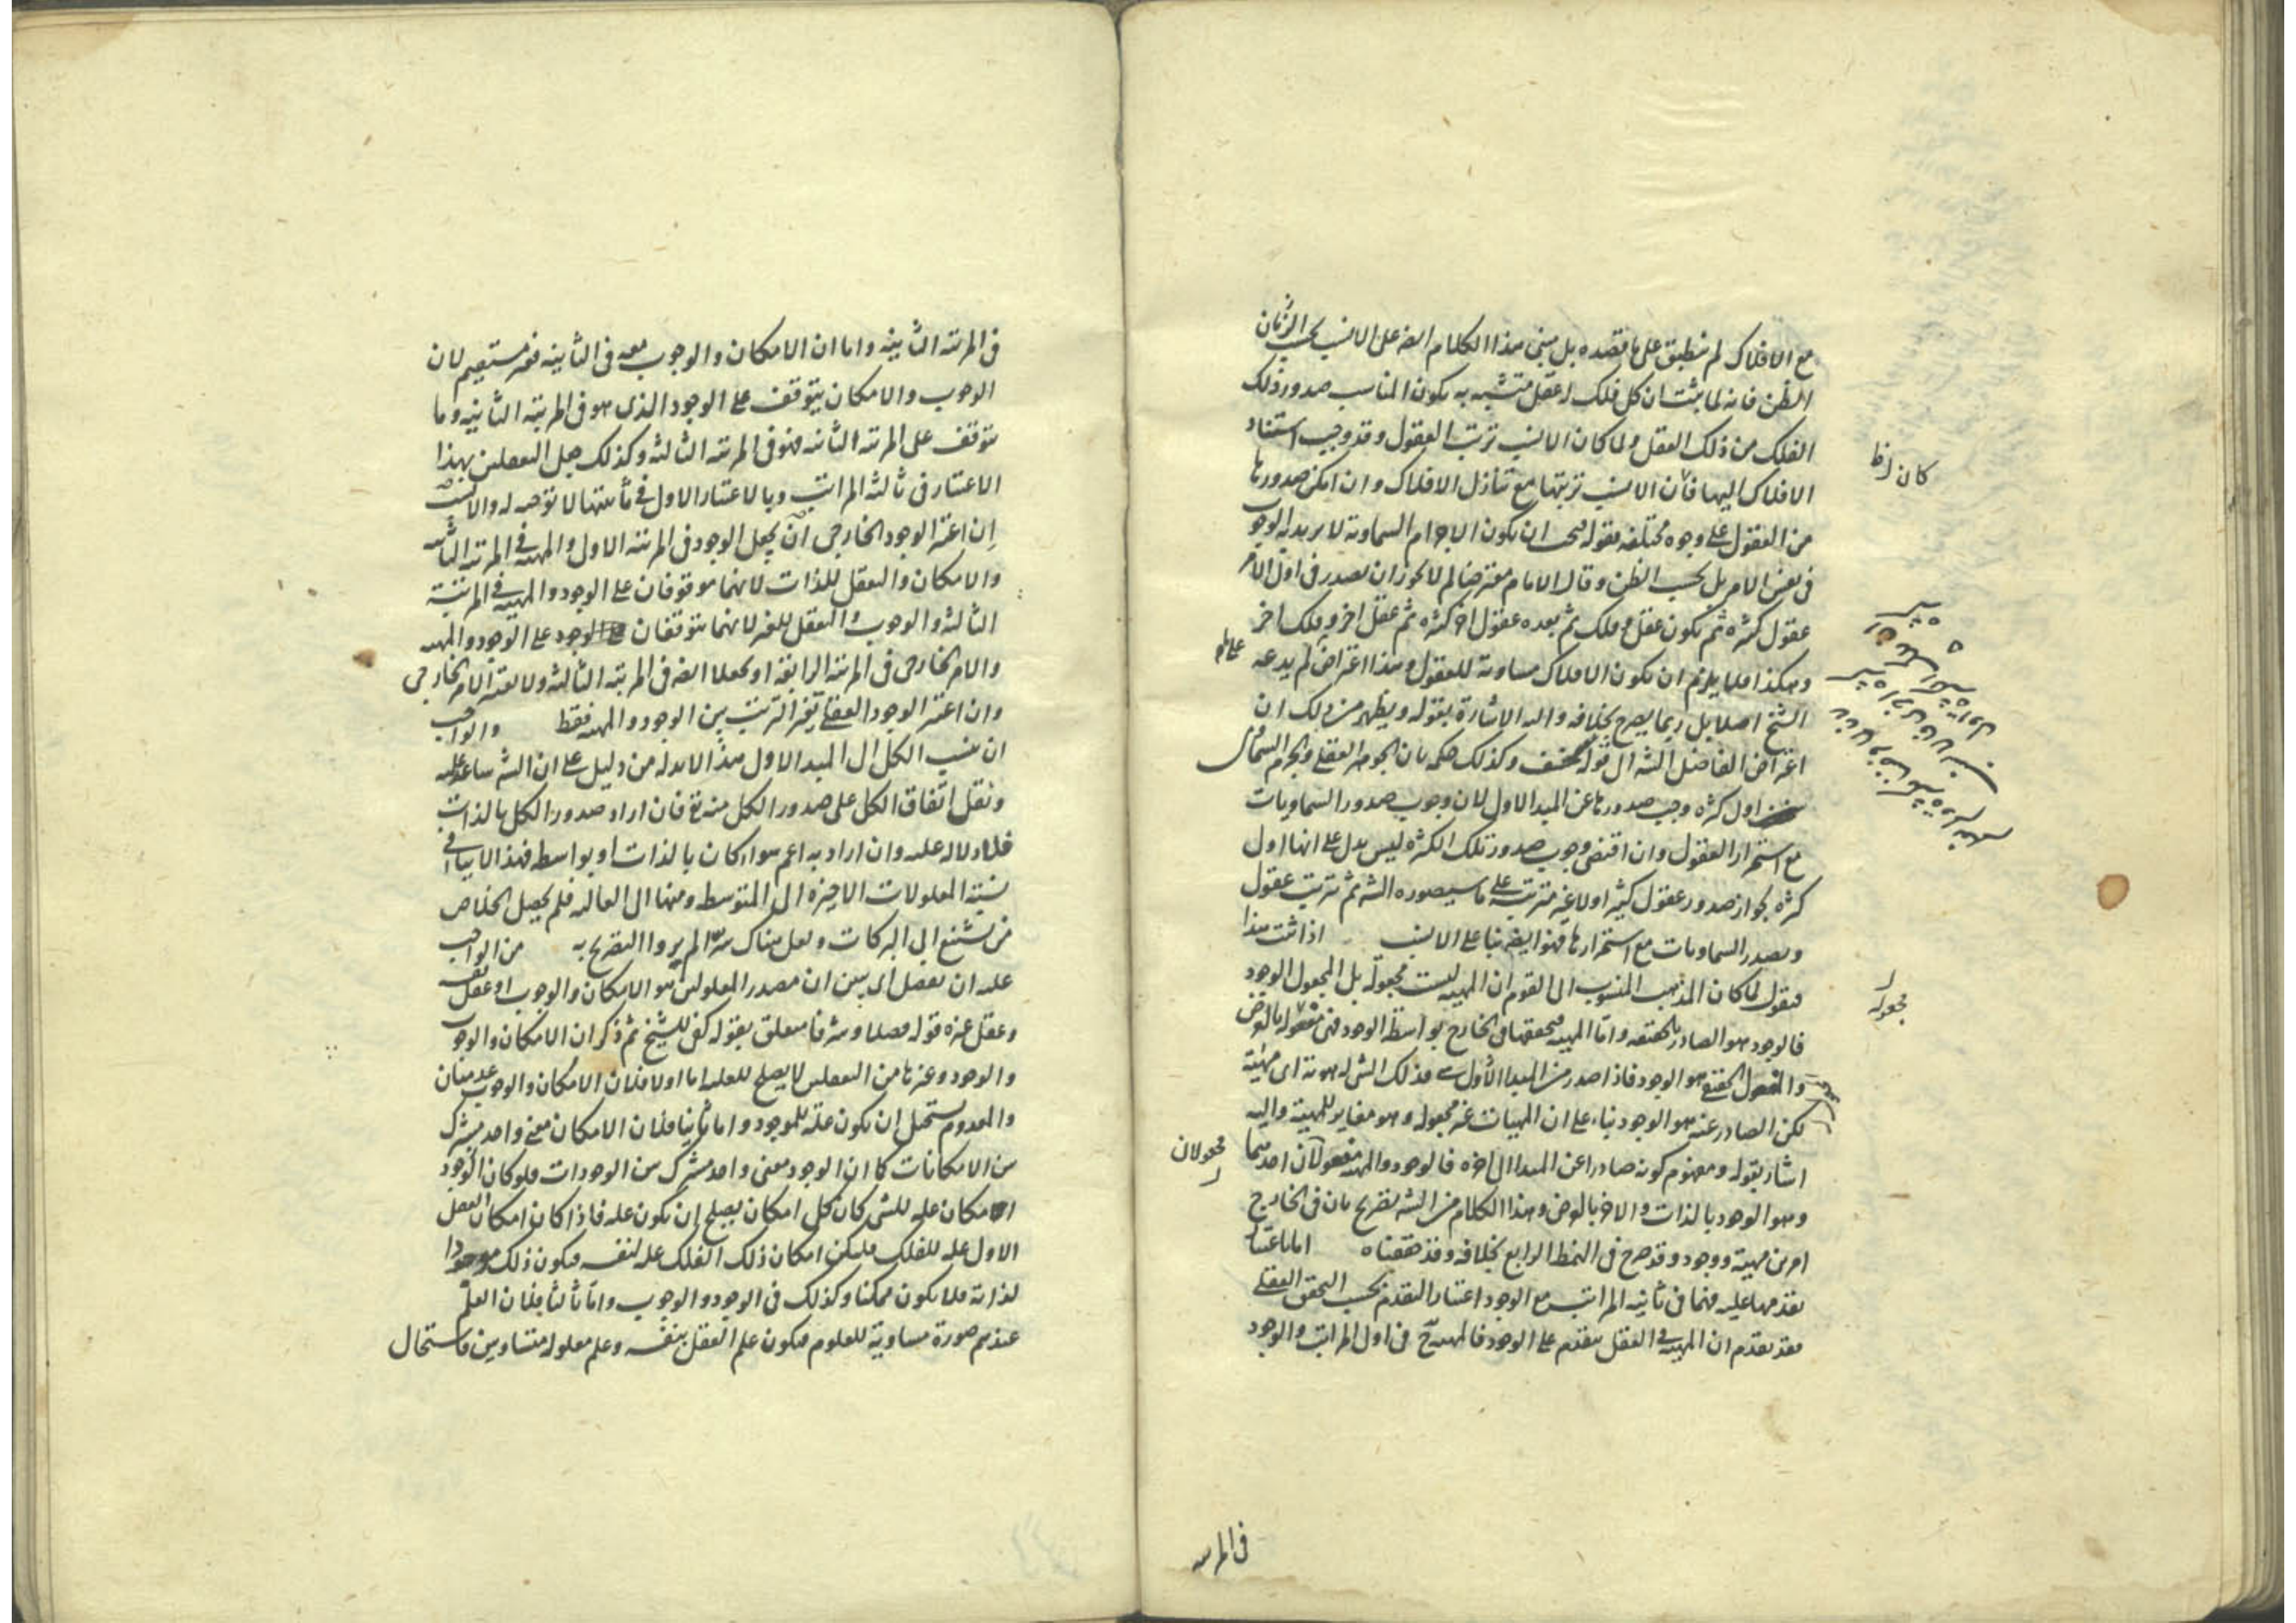 مع الافلاك لم ينطبق على ما قصده بل مبنى هذا الكلام ايضا على الانسب بحسب الزمان
الظن فانه لما ثبت ان كل فلك له عقل متشبه به يكون المناسب صدور ذلك
الفلك من ذلك العقل ولما كان الانسب ترتب العقول وقد وجب استناد
الافلاك اليها فان الانسب ترتبها مع تنازل الافلاك وان امكن صدورها
كان لفظا
من العقول على وجوه مختلفه فقوله فيجب ان يكون الاجرام السماوية لا يريد به الوجوب
فى نفس الامر بل بحسب الظن وقال الامام معترضا لم لا يجوز ان يصدر فى اول الامر
عقول كثيره ثم يكون عقل وفلك ثم بعده عقول اخر كثيره ثم عقل اخر وفلك اخر
وهكذا فلا يلزم ان يكون الافلاك مساوية للعقول وهذا اعتراض لم يدعه
الشيخ اصلا بل ربما يصرح بخلافه واليه الاشارة بقوله ويظهر من ذلك ان
اعتراض الفاضل الشه الى قوله سخيف وكذلك حكمه بان الجوهر العقلى والجرم السمائى
اول كثره وجب صدورها عن المبدا الاول لان وجوب صدور السماويات
مع استمرار العقول وان اقتضى وجوب صدور تلك الكثره ليس يدل على انها اول
كثره لجواز صدور عقول كثيره اولا غير مترتبه على ما سيصوره الشه ثم ترتيب عقول
ويصدر السماويات مع استمرارها فهو ايضا بناء على الانسب اذا ثبت هذا
فنقول لما كان المذهب المنسوب الى القوم ان المهية ليست مجعولة بل المجعول الوجود
مجعوله
فالوجود هو الصادر بالحقيقه واما المهية فتحققها فى الخارج بواسطة الوجود فهى مفعوله بالعرض
والمفعول الحقيقى هو الوجود فاذا صدر من المبدا الاول شى فذلك الشى له هوية اى مهية
لكن الصادر عنه هو الوجود بناء على ان المهيات غير مجعولة وهو مغاير للمهية واليه
اشار بقوله ومفهوم كونه صادرا عن المبدا الى اخره فالوجود والمهية مفعولان احدهما
مجعولان
وهو الوجود بالذات والاخر بالعرض وهذا الكلام من الشه تصريح بان فى الخارج
امرين مهية ووجود وقد صرح فى النمط الرابع بخلافه وقد حققناه اما باعتبار
تقدمها عليه فهما فى ثانيه المراتب مع الوجود اعتبار التقدم بحسب التحقق العقلى
فقد تقدم ان المهية فى العقل متقدم على الوجود فالمهية ح فى اول المراتب والوجود
فى المرتبه
فى المرتبه الثانيه واما ان الامكان والوجوب معه فى الثانيه فغير مستقيم لان
الوجوب والامكان يتوقف على الوجود الذى هو فى المرتبه الثانيه وما
يتوقف على المرتبه الثانيه فهو فى المرتبه الثالثه وكذلك جعل التعقلين بهذا
الاعتبار فى ثالثه المراتب وبالاعتبار الاول فى ثانيتها لا توجيه له والانسب
ان اعتبر الوجود الخارجى ان يجعل الوجود فى المرتبه الاولى والمهية فى المرتبه الثانيه
والامكان والتعقل للذات لانهما موقوفان على الوجود والمهية فى المرتبة
الثالثه والوجوب والتعقل للغير لانهما يتوقفان على الوجود والمهية
والامر الخارجى فى المرتبه الرابعه او يجعلا ايضا فى المرتبه الثالثه ولا يعتبر الامر الخارجى
وان اعتبر الوجود العقلى تغير الترتيب بين الوجود والمهية فقط والواجب
ان ينسب الكل الى المبدا الاول هذا لا بد له من دليل على ان الشه ساعد عليه
ونقل اتفاق الكل على صدور الكل منه تع فان اراد صدور الكل بالذات
فلا دلاله عليه وان اراد به اعم سواء كان بالذات او بواسطه فهذا لا ينافى
نسبة المعلولات الاخيره الى المتوسطه ومنها الى العاليه فلم يحصل الخلاص
من تشنيع ابى البركات ولعل هناك سرا لم يروا التصريح به من الواجب
عليه ان يفصل اى يبين ان مصدر المعلولين هو الامكان والوجوب او عقل نفسه
وعقل غيره قوله فصلا وشرفا متعلق بقوله كفى للشيخ ثم ذكر ان الامكان والوجوب
والوجود وغيرها من التعقلين لا يصلح للعليه اما اولا فلان الامكان والوجوب عدميتان
والمعدوم يستحيل ان يكون علة للموجود واما ثانيا فلان الامكان معنى واحد مشترك
بين الامكانات كما ان الوجود معنى واحد مشترك بين الوجودات فلو كان الوجود
امكان عليه للشى كان كل امكان يصلح ان يكون عله فاذا كان امكان العقل
الاول عله للفلك فليكن امكان ذلك الفلك عله لنفسه فيكون ذلك موجودا
لذاته فلا يكون ممكنا وكذلك فى الوجود والوجوب واما ثالثا فلان العلم
عندهم صورة مساوية للمعلوم فيكون علم العقل بنفسه وعلم معلوله متساويين فاستحال